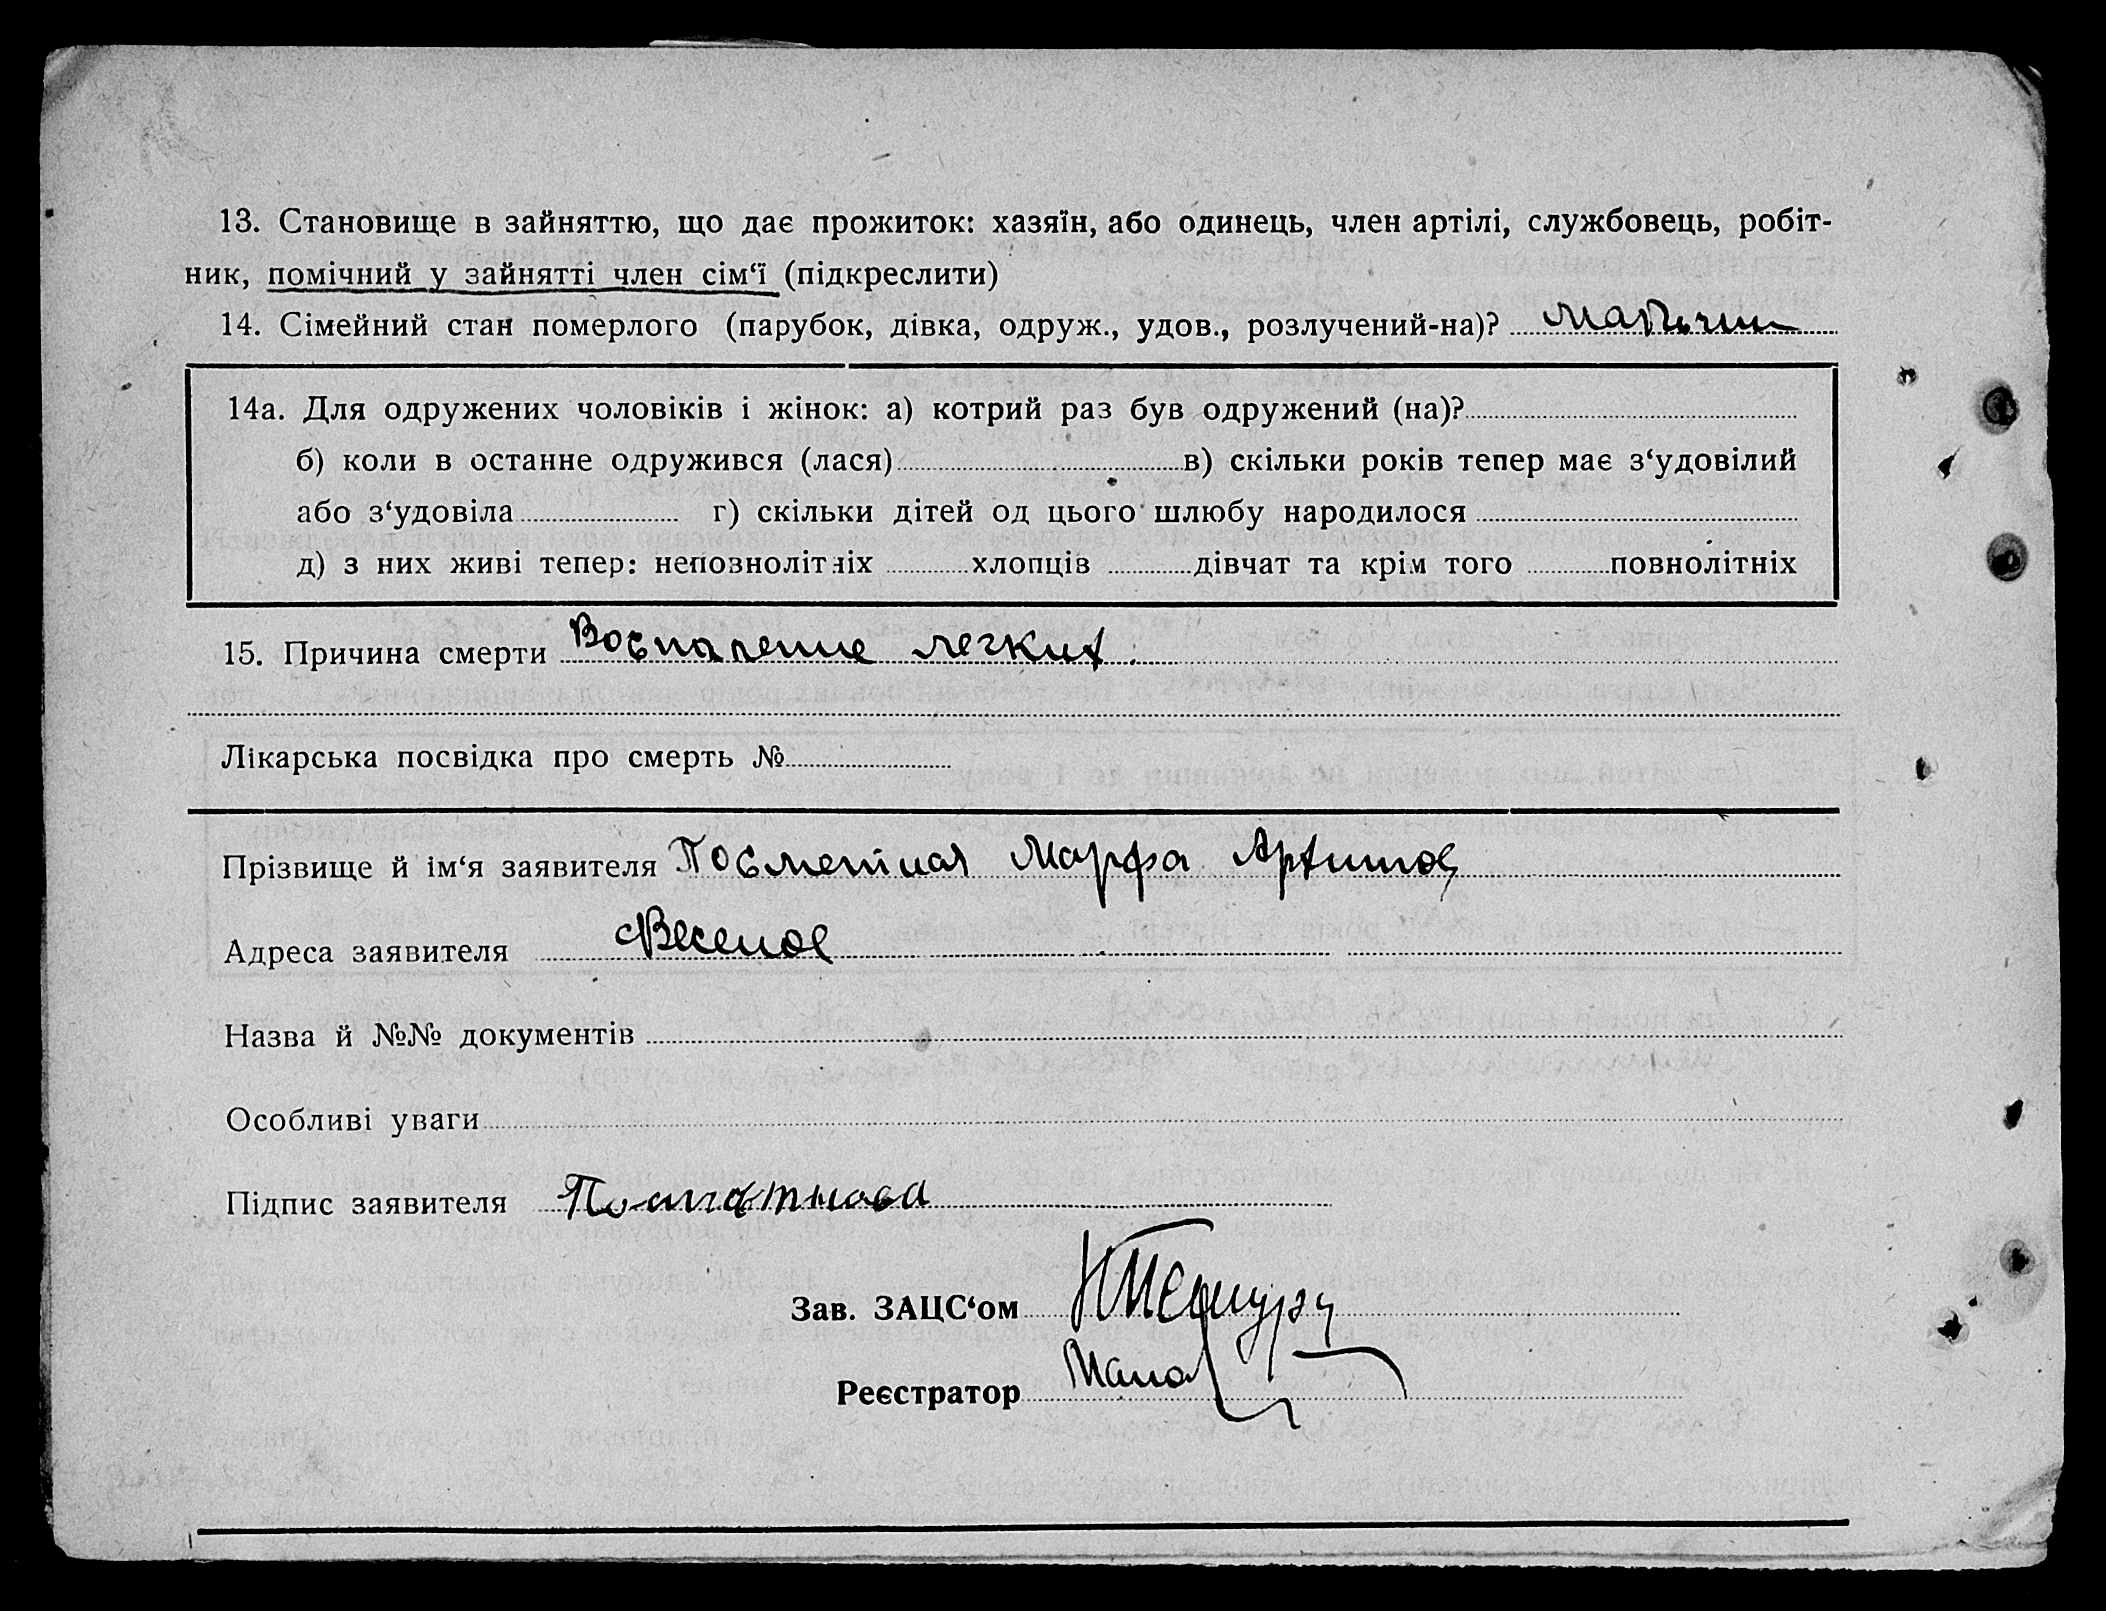 13. Становище в зайняттю, що дає прожиток: хазяїн, або одинець, член артілі, службовець, робіт-
ник, помічний у зайнятті член сім‘ї (підкреслити)
14. Сімейний стан померлого (парубок, дівка, одруж., удов., розлучений-на)?
14а. Для одружених чоловіків і жінок: а) котрий раз був одружений (на)?
б) коли в останне одружився (лася) в) скільки років тепер має з‘удовілий
або з‘удовіла г) скільки дітей од цього шлюбу народилося
д) з них живі тепер: неповнолітніх хлопців дівчат та крім того повнолітніх
15. Причина смерти Воспаление легких.
Лікарська посвідка про смерть №
Прізвище й ім‘я заявителя Посметная Марфа
Адреса заявителя с Веселое
Назва й №№ документів
Особливі уваги
Підпис заявителя
Зав. ЗАЦС‘ом
Реєстратор